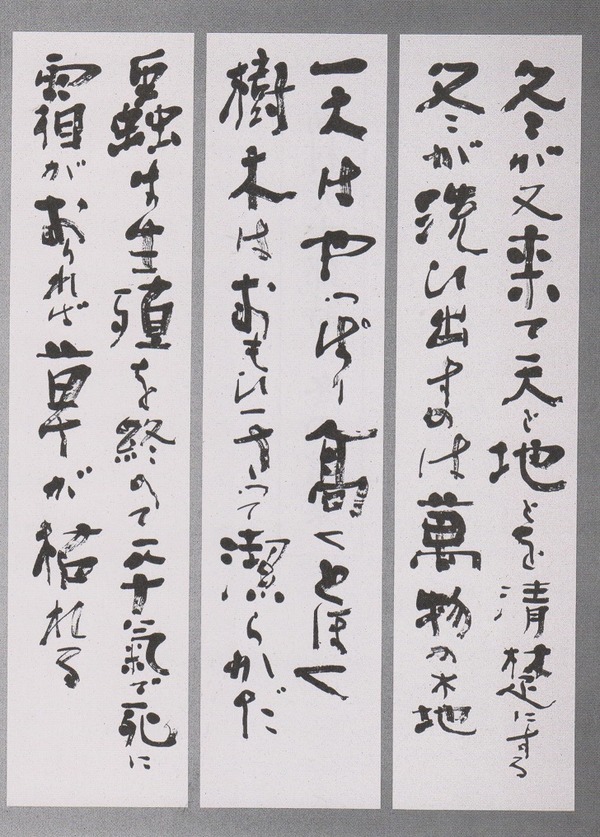 冬が又来て天と地とを清楚にする
冬が洗ひ出すのは萬物の木地
天はやっぱり高くとほく
樹木はおもひきって潔らかだ
蟲は生殖を終へて平気で死に
霜がおりれば草が枯れる